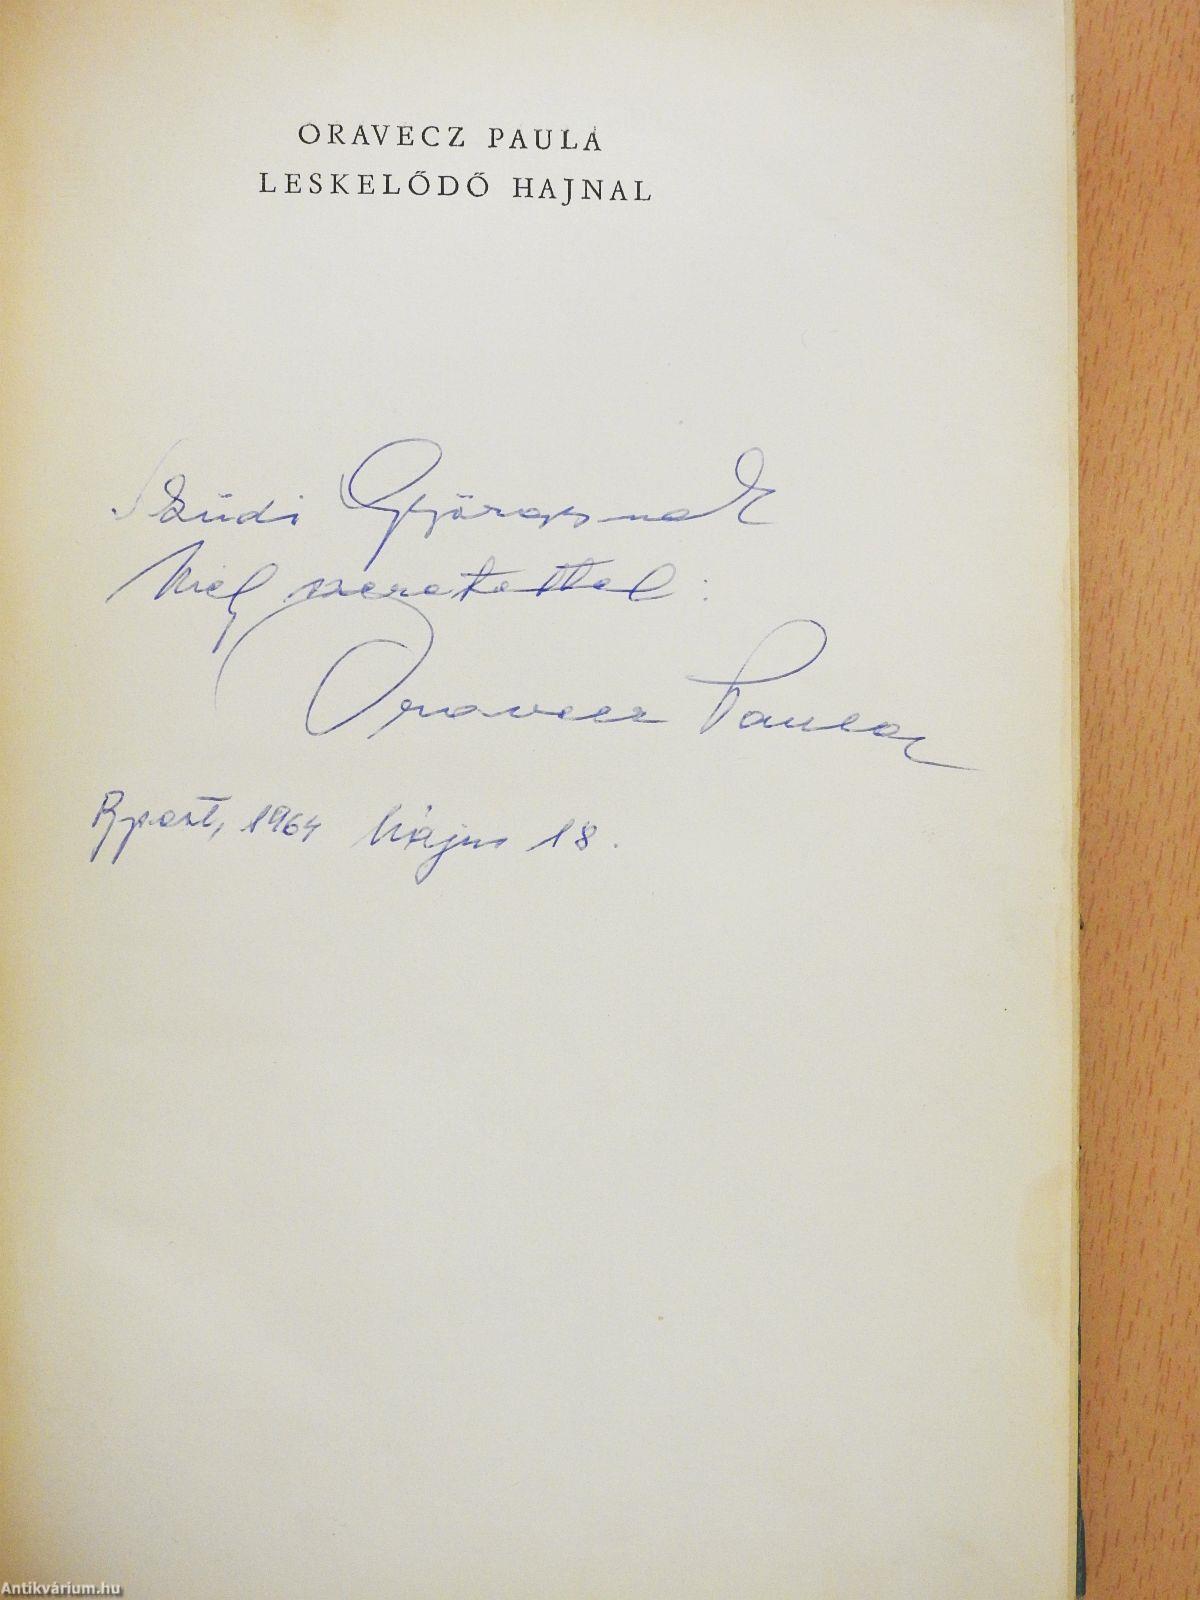 ORAVECZ PAULA
LESKELŐDŐ HAJNAL
Szüdi Györgynek
Mély szeretettel:
Oravecz Paula
Bpest, 1964 Május 18.
Antikvárium.hu